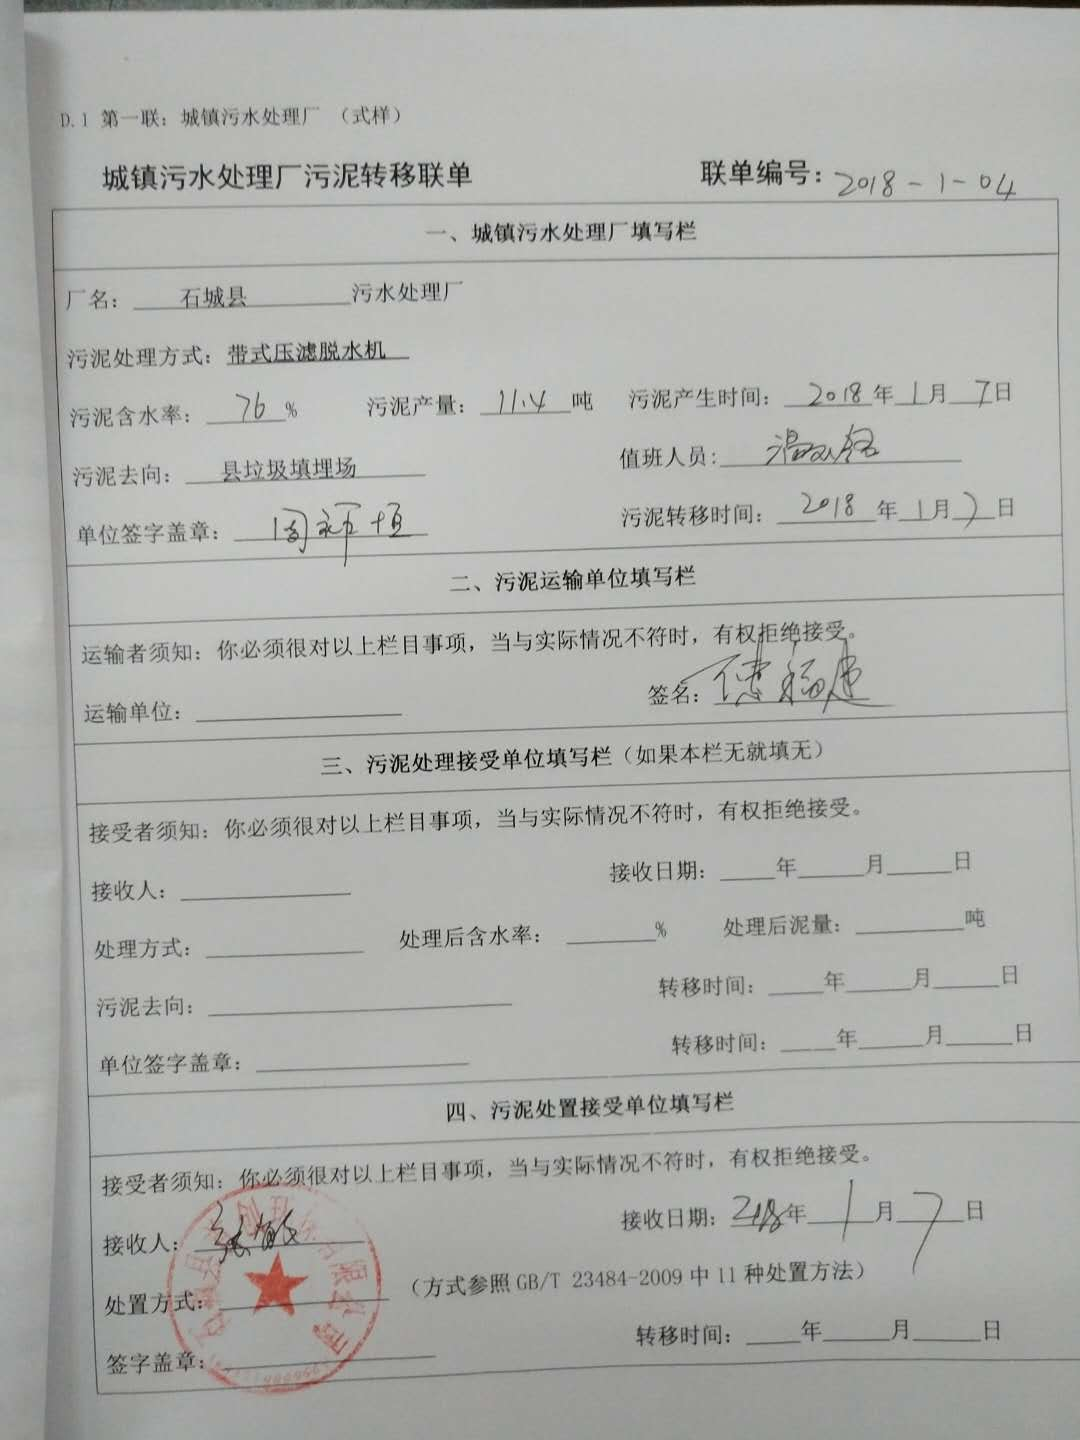 D.1 第一联：城镇污水处理厂 （式样）
城镇污水处理厂污泥转移联单 联单编号：2018-1-04
一、城镇污水处理厂填写栏
厂名：石城县污水处理厂
污泥处理方式：带式压滤脱水机
污泥含水率：76% 污泥产量：11.4吨 污泥产生时间：2018年1月7日
污泥去向：县垃圾填埋场 值班人员：
单位签字盖章： 污泥转移时间：2018年1月7日
二、污泥运输单位填写栏
运输者须知：你必须很对以上栏目事项，当与实际情况不符时，有权拒绝接受。
运输单位： 签名：
三、污泥处理接受单位填写栏（如果本栏无就填无）
接受者须知：你必须很对以上栏目事项，当与实际情况不符时，有权拒绝接受。
接收人： 接收日期：年月日
处理方式： 处理后含水率：% 处理后泥量：吨
污泥去向： 转移时间：年月日
单位签字盖章： 转移时间：年月日
四、污泥处置接受单位填写栏
接受者须知：你必须很对以上栏目事项，当与实际情况不符时，有权拒绝接受。
接收人： 接收日期：2018年1月7日
处置方式： （方式参照GB/T 23484-2009中11种处置方法）
转移时间：年月日
签字盖章：